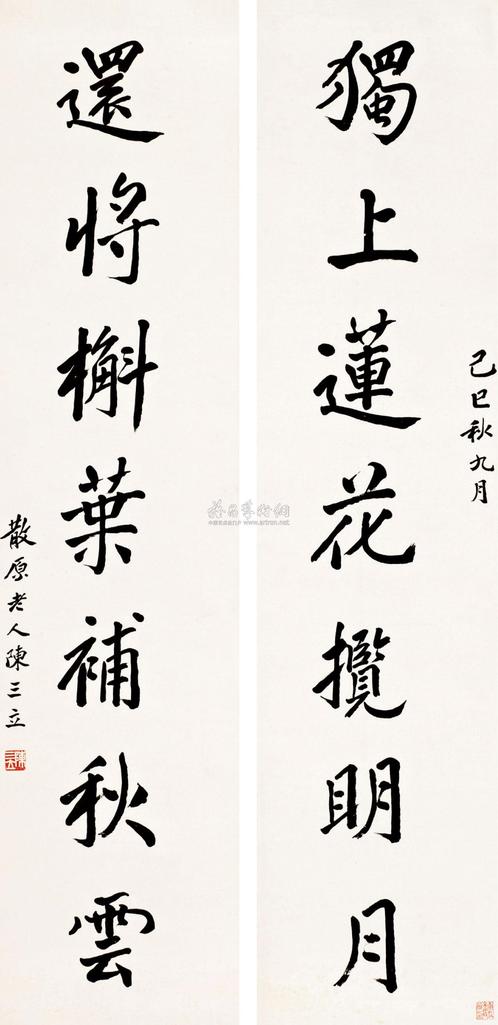 己巳秋九月
獨上蓮花攬明月
還將槲葉補秋雲
散原老人陳三立
www.artron.net